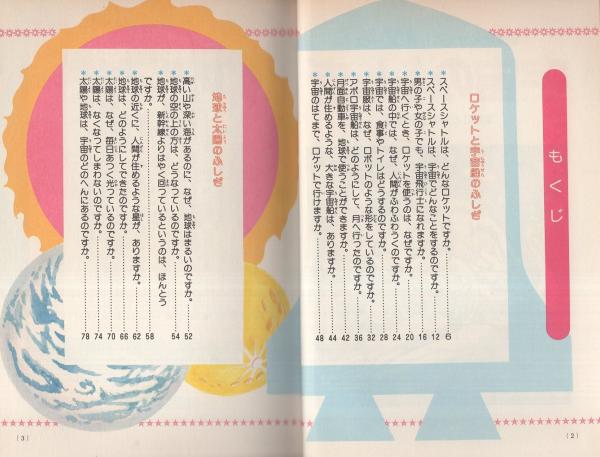 もくじ
ロケットと宇宙船のふしぎ
＊スペースシャトルは、どんなロケットですか。……6
＊スペースシャトルは、宇宙でどんなことをするのですか。……12
＊男の子や女の子でも、宇宙飛行士になれますか。……16
＊宇宙へ行くとき、ロケットを使うのは、なぜですか。……20
＊宇宙船の中では、なぜ、人間がふわふわうくのですか。……24
＊宇宙では、食事やトイレはどうするのですか。……28
＊宇宙服は、なぜ、ロボットのような形をしているのですか。……32
＊アポロ宇宙船は、どのようにして、月へ行ったのですか。……36
＊月面自動車を、地球で使うことができますか。……42
＊人間が住めるような、大きな宇宙船は、ありますか。……44
＊宇宙のはてまで、ロケットで行けますか。……48
(2)
地球と太陽のふしぎ
＊高い山や深い海があるのに、なぜ、地球はまるいのですか。……52
＊地球の空の上の方は、どうなっているのですか。……54
＊地球が、新幹線よりはやく回っているというのは、ほんとう
ですか。……58
＊地球の近くに、人間が住めるような星が、ありますか。……62
＊地球は、どのようにしてできたのですか。……66
＊太陽は、なぜ、毎日あつく光っているのですか。……70
＊太陽は、なくなってしまわないのですか。……74
＊太陽や地球は、宇宙のどのへんにあるのですか。……78
(3)